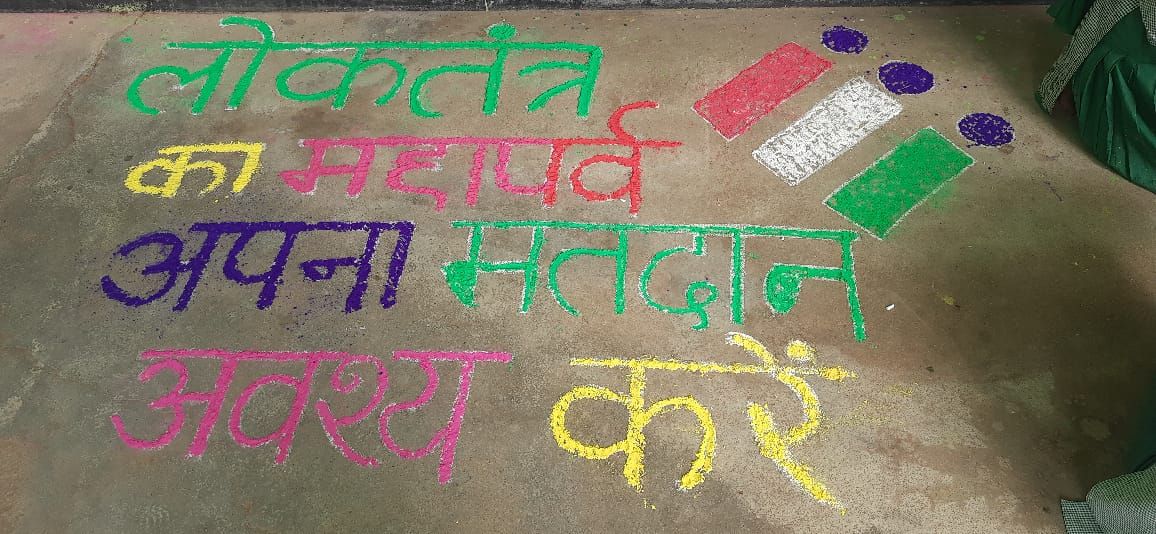 लोकतंत्र
का महापर्व
अपना मतदान
अवश्य करें